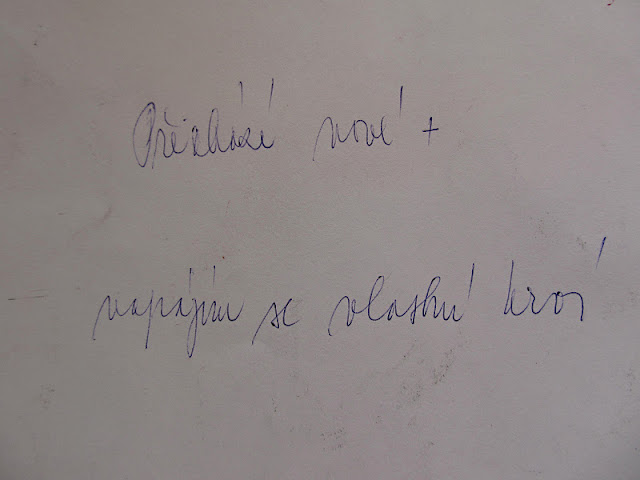 Přichází nové +
napájím se vlastní krví